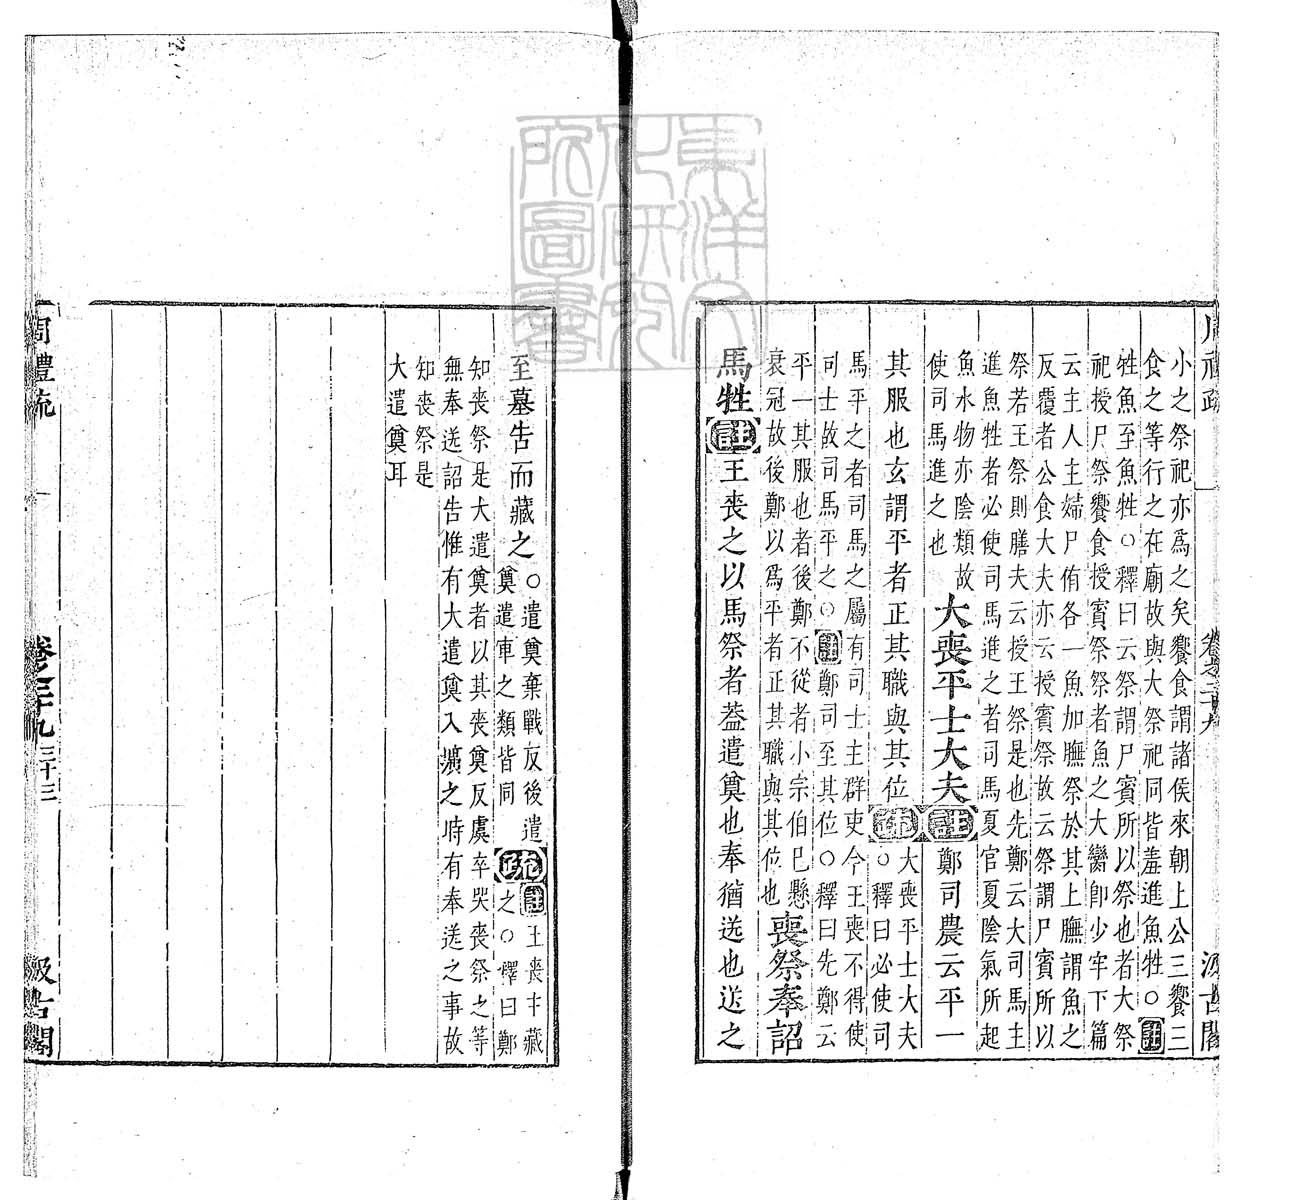 周禮疏
卷之二十九
汲古閣
小之祭祀亦爲之矣饗食謂諸侯來朝上公三饗三
食之等行之在廟故與大祭祀同皆羞進魚牲○註
牲魚至魚牲○釋曰云祭謂尸賓所以祭也者大祭
祀授尸祭饗食授賓祭祭者魚之大臠卽少牢下篇
云主人主婦尸侑各一魚加膴祭於其上膴謂魚之
反覆者公食大夫亦云授賓祭故云祭謂尸賓所以
祭若王祭則膳夫云授王祭是也先鄭云大司馬主
進魚牲者必使司馬進之者司馬夏官夏陰氣所起
魚水物亦陰類故
使司馬進之也
大喪平士大夫註鄭司農云平一
其服也玄謂平者正其職與其位疏
大喪平士大夫
○釋曰必使司
馬平之者司馬之屬有司士主群吏今王喪不得使
司士故司馬平之○註鄭司至其位○釋曰先鄭云
平一其服也者後鄭不從者小宗伯已懸
衰冠故後鄭以爲平者正其職與其位也
喪祭奉詔
馬牲註王喪之以馬祭者葢遣奠也奉猶送也送之
至墓告而藏之
○遣奠棄戰反後遣
奠遣車之類皆同
疏
註王喪中藏
之○釋曰鄭
知喪祭是大遣奠者以其喪奠反虞卒哭喪祭之等
無奉送詔告惟有大遣奠入壙之時有奉送之事故
知喪祭是
大遣奠耳
周禮疏
卷之二十九
三十三
汲古閣
東洋文
化研究
所圖書